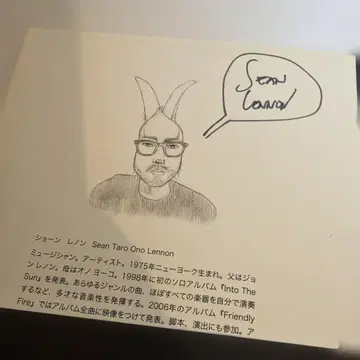 SEAN
LENNON
ショーン レノン Sean Taro Ono Lennon
ミュージシャン。アーティスト。1975年ニューヨーク生まれ。父はジョ
ン レノン。母はオノ ヨーコ。1998年に初のソロアルバム『Into The
Sun』を発表。あらゆるジャンルの曲、ほぼすべての楽器を自分で演奏
するなど、多才な音楽性を発揮する。2006年のアルバム『Friendly
Fire』ではアルバム全曲に映像をつけて発表。脚本、演出にも参加。ア